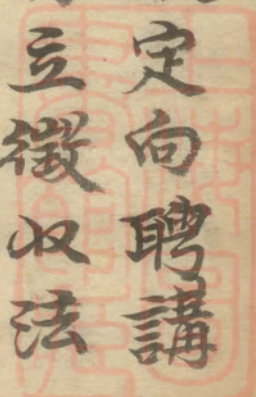 定向聘講
立徵收法